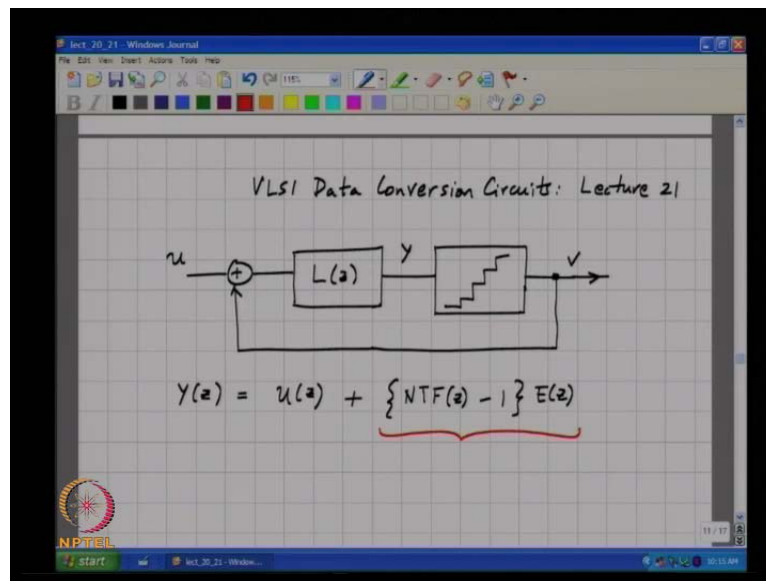 lect_20_21 - Windows Journal
File Edit View Insert Actions Tools Help
115%
B I
VLSI Data Conversion Circuits: Lecture 21
u
+
L(z)
Y
V
Y(z) = U(z) + {NTF(z) - 1} E(z)
NPTEL
11 / 17
start
lect_20_21 - Window...
10:55 AM